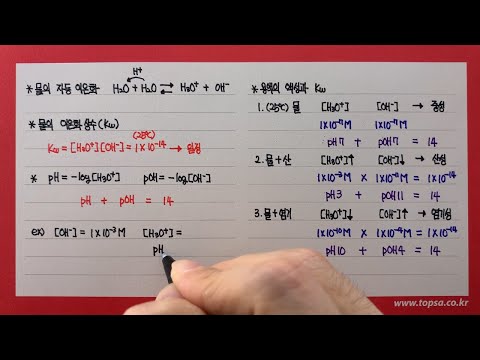 H⁺
* 물의 자동 이온화 H₂O + H₂O ⇄ H₃O⁺ + OH⁻
* 물의 이온화 상수(Kw)
(25℃)
Kw = [H₃O⁺][OH⁻] = 1×10⁻¹⁴ → 일정
* pH = -log[H₃O⁺] pOH = -log[OH⁻]
pH + pOH = 14
ex) [OH⁻] = 1×10⁻³M [H₃O⁺] =
pH
* 용액의 액성과 Kw
1. (25℃) 물 [H₃O⁺] [OH⁻] → 중성
1×10⁻⁷M 1×10⁻⁷M
pH7 + pOH7 = 14
2. 물+산 [H₃O⁺]↑ [OH⁻]↓ → 산성
1×10⁻³M × 1×10⁻¹¹M = 1×10⁻¹⁴
pH3 + pOH11 = 14
3. 물+염기 [H₃O⁺]↓ [OH⁻]↑ → 염기성
1×10⁻¹⁰M × 1×10⁻⁴M = 1×10⁻¹⁴
pH10 + pOH4 = 14
www.topsa.co.kr